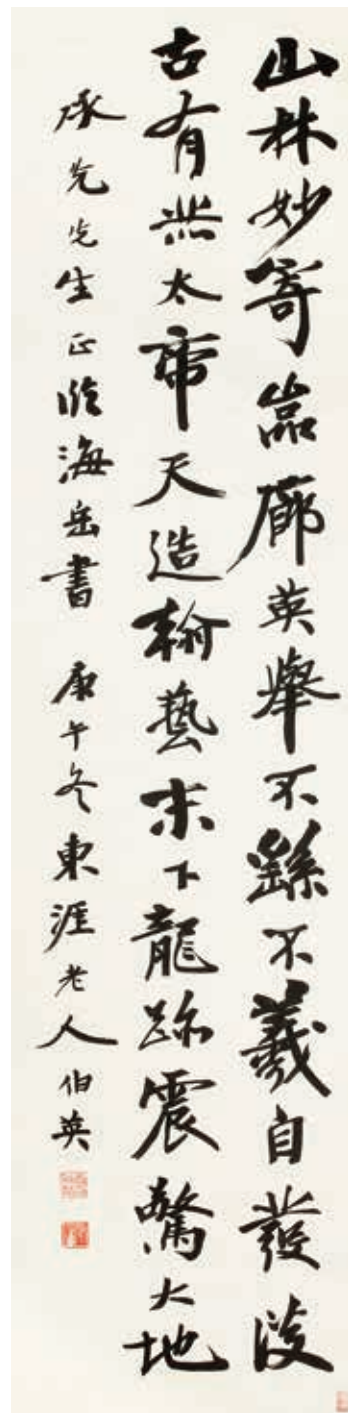 山林妙寄嵓廊英舉不繇不羲自發淡
古有太帝天造翰藝末下龍跡震驚大地
承先先生正臨海岳書 庚午冬東涯老人伯英